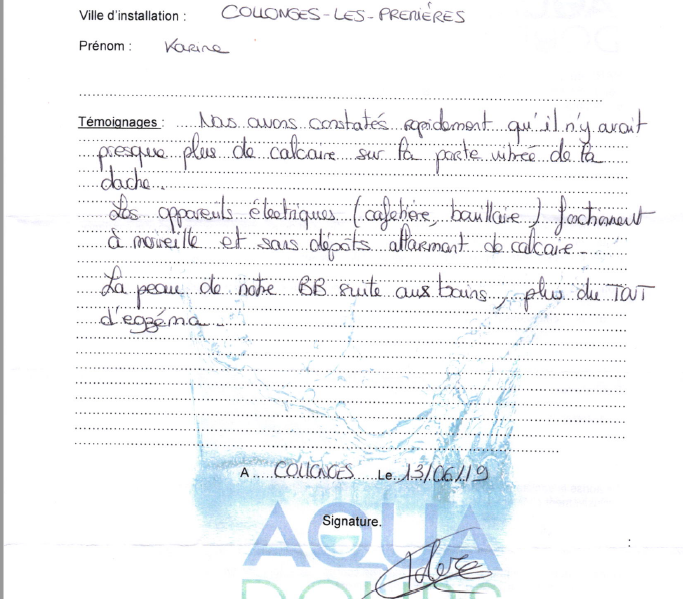 Ville d'installation : COLLONGES-LES-PREMIÈRES
Prénom : Karine
Témoignages : Nous avons constatés rapidement qu'il n'y avait
presque plus de calcaire sur la porte vitrée de la
douche.
Les appareils électriques (cafetière, bouilloire) fonctionnent
à merveille et sans dépôts de calcaire.
La peau de notre BB suite aux bains, plus du TOUT
d'egzéma.
A COLLONGES Le 13/06/19
Signature.
AQUA
DOUBS